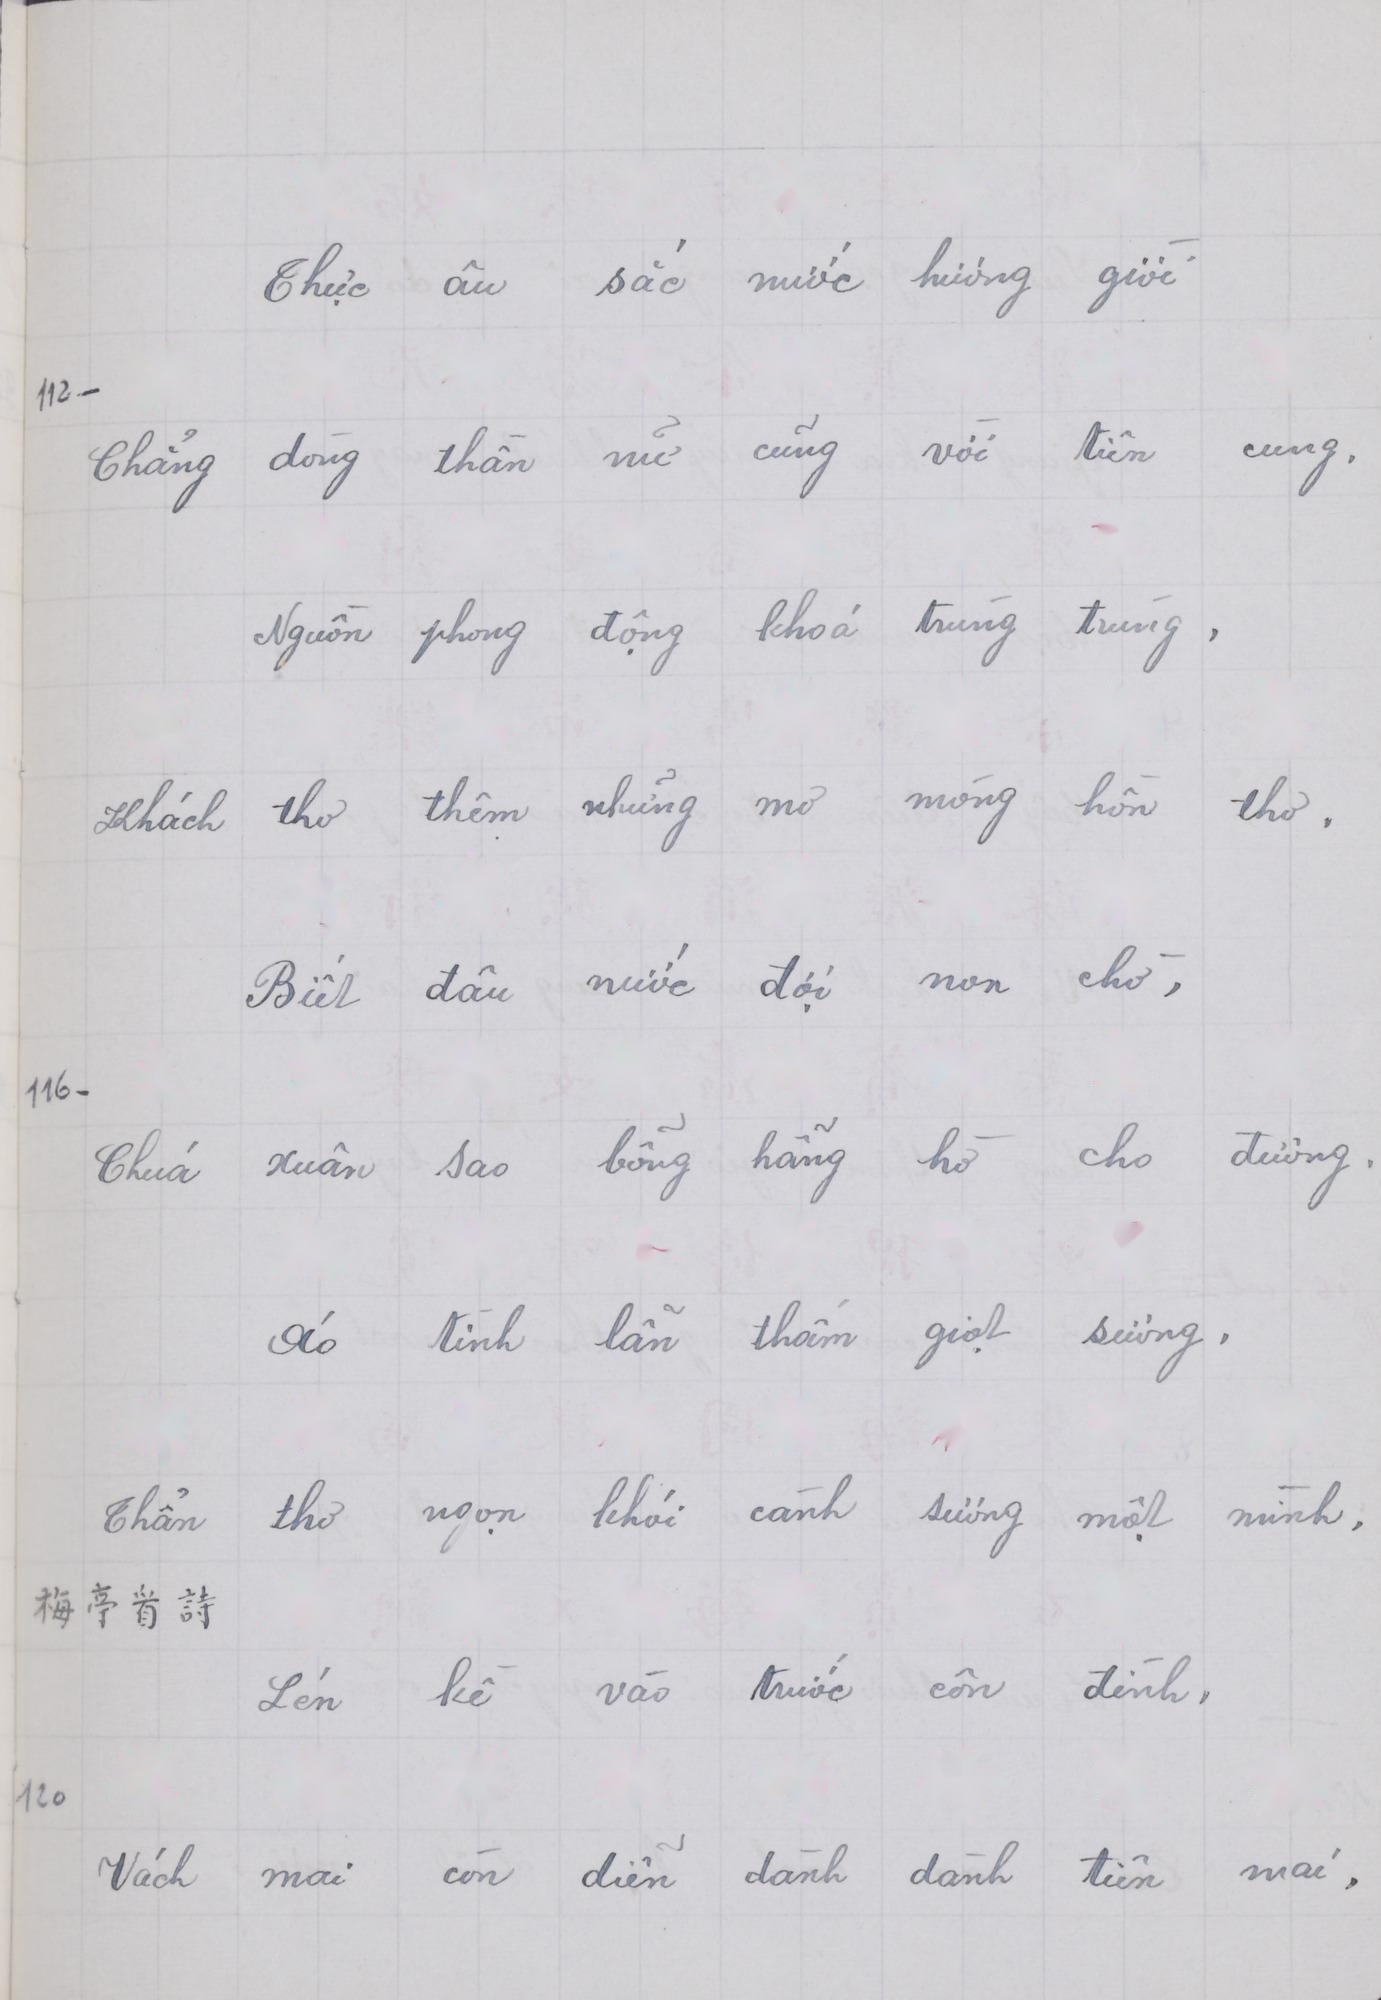 Thực âu sắc nước hương giời
112-
Chẳng dòng thần nữ cũng vời tiên cung.
Nguồn phong động khoá trùng trùng,
Khách thơ thêm những mơ mòng hồn thơ.
Biết đâu nước đợi non chờ,
116-
Chuá xuân sao bỗng hẫng hờ cho đương.
Áo tình lẫn thấm giọt sương,
Thẩn thơ ngọn khói cành sương một mình,
梅亭題詩
Lén kề vào trước côn đình,
120
Vách mai còn diễn dành dành tiên mai,